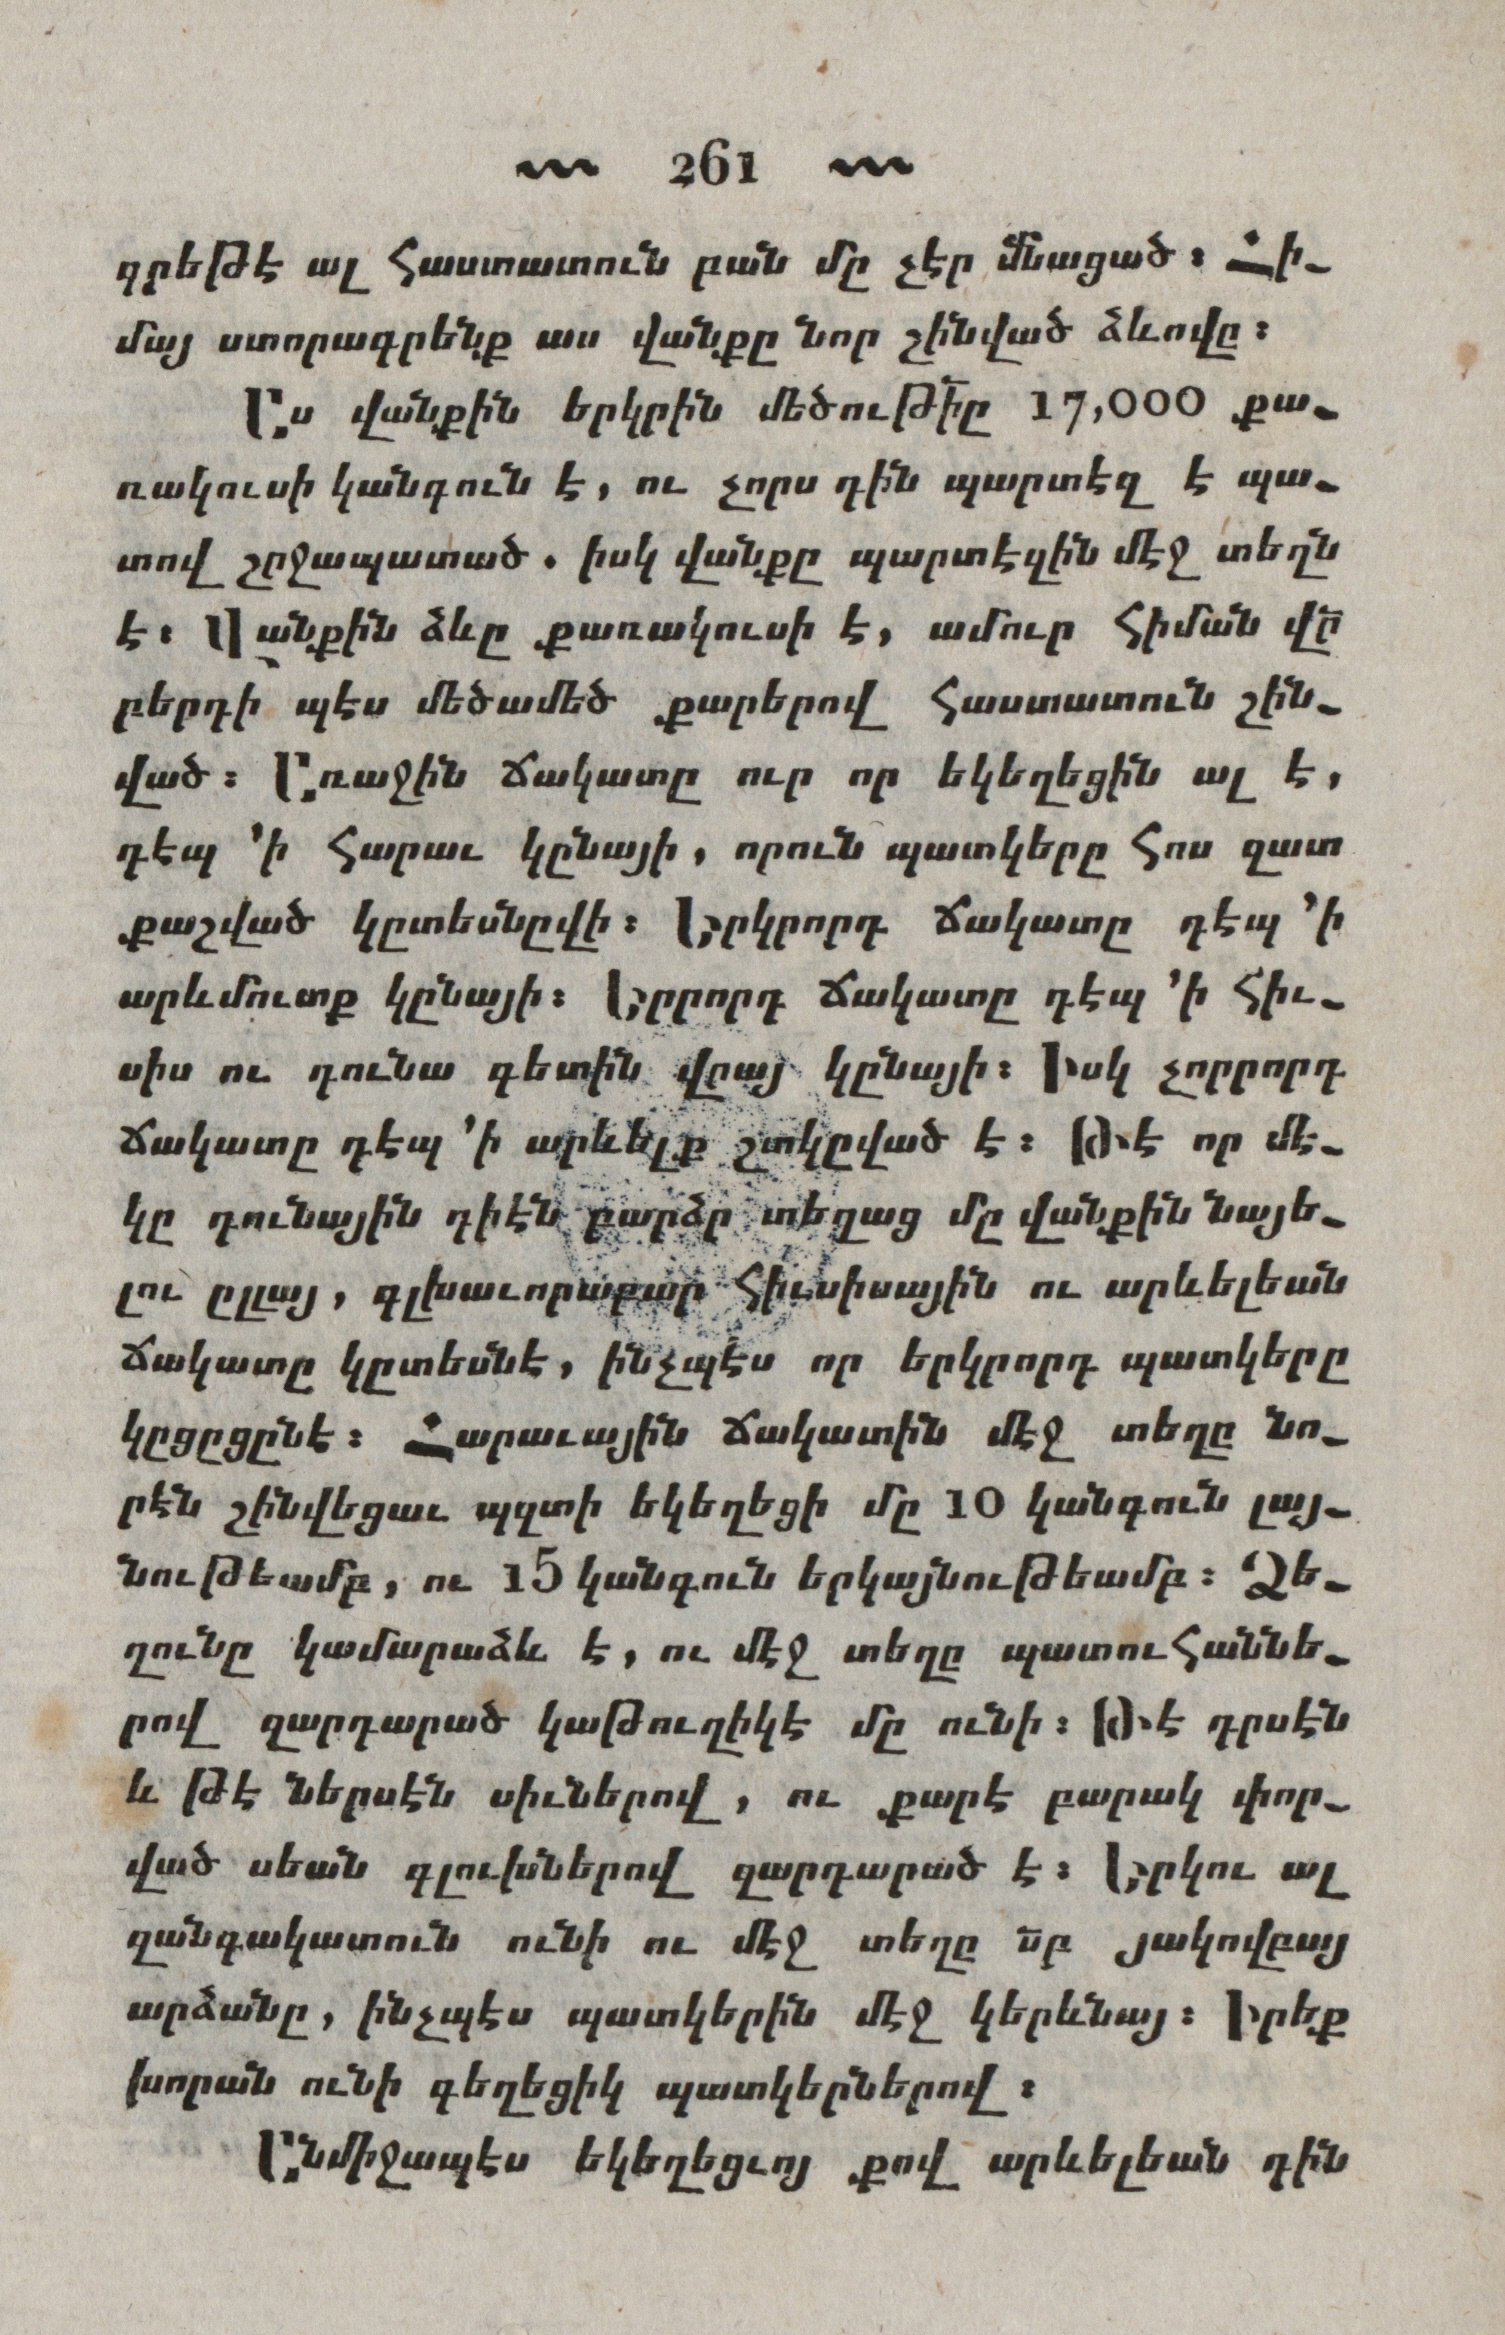 261
գրեթէ ալ հաստատուն բան մը չէր մնացած։ Հի֊
մայ ստորագրենք աս վանքը նոր շինված ձևովը։
Աս վանքին երկրին մեծութիը 17,000 քա֊
ռակուսի կանգուն է, ու չորս դին պարտէզ է պա֊
տով շրջապատած. իսկ վանքը պարտէզին մէջ տեղն
է։ Վանքին ձևը քառակուսի է, ամուր հիման վր
բերդի պէս մեծամեծ քարերով հաստատուն շին֊
ված։ Առաջին ճակատը ուր որ եկեղեցին ալ է,
դէպ ՚ի հարաւ կընայի, որուն պատկերը հոս զատ
քաշված կըտեսնըվի։ Երկրորդ ճակատը դէպ ՚ի
արևմուտք կընայի։ Երրորդ ճակատը դէպ ՚ի հիւ֊
սիս ու դունա գետին վրայ կընայի։ Իսկ չորրորդ
ճակատը դէպ ՚ի արևելք շտկըված է։ Թէ որ մէ֊
կը դունային դիէն բարձր տեղաց մը վանքին նայե֊
լու ըլլայ, գլխաւորաբար հիւսիսային ու արևելեան
ճակատը կըտեսնէ, ինչպէս որ երկրորդ պատկերը
կըցըցընէ։ Հարաւային ճակատին մէջ տեղը նո֊
րէն շինվեցաւ պզտի եկեղեցի մը 10 կանգուն լայ֊
նութեամբ, ու 15 կանգուն երկայնութեամբ։ Ձե֊
ղունը կամարաձև է, ու մէջ տեղը պատուհաննե֊
րով զարդարած կաթուղիկէ մը ունի։ Թէ դրսէն
և թէ ներսէն սիւներով, ու քարէ բարակ փոր֊
ված սեան գլուխներով զարդարած է։ Երկու ալ
զանգակատուն ունի ու մէջ տեղը սբ Յակովբայ
արձանը, ինչպէս պատկերին մէջ կերևնայ։ Իրեք
խորան ունի գեղեցիկ պատկերներով։
Անմիջապէս եկեղեցւոյ քով արևելեան դին